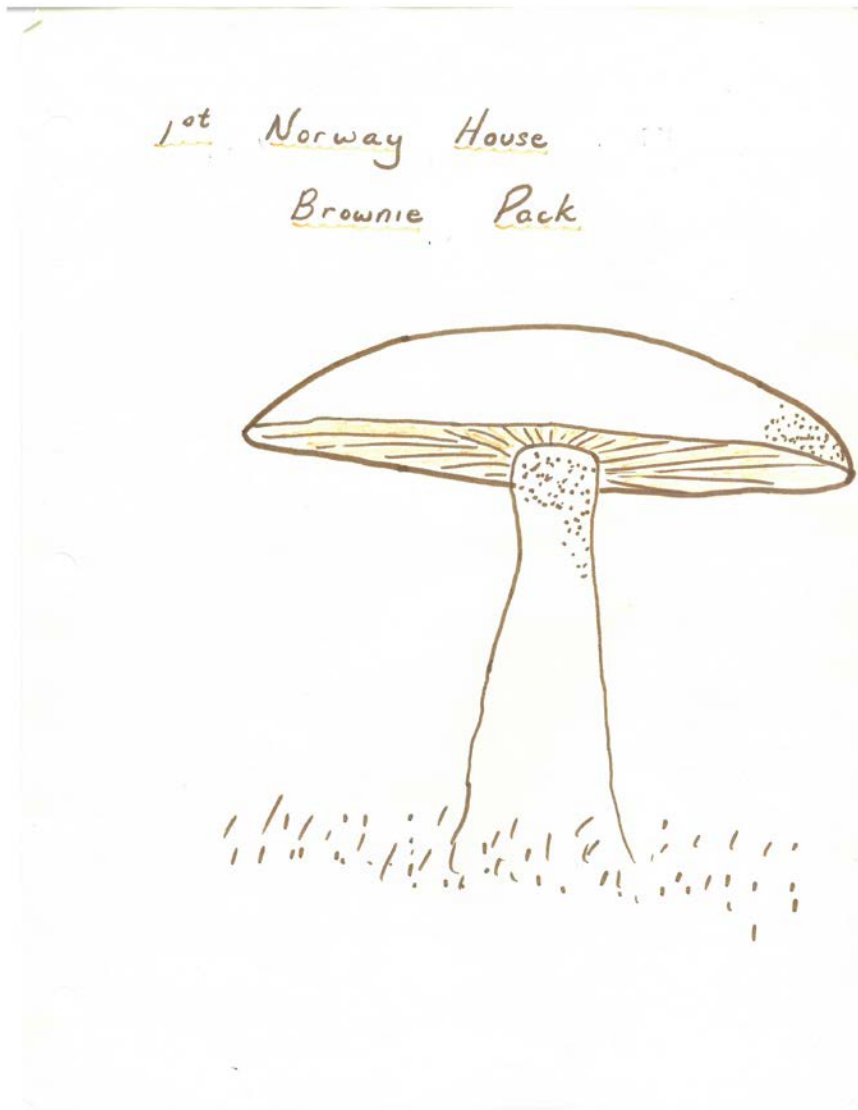 1st Norway House
Brownie Pack